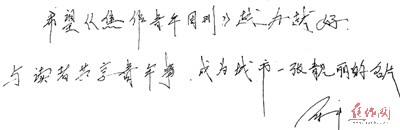 希望《焦作青年周刊》越办越好.
与读者共享青年事,成为城市一张靓丽的名片
焦作网